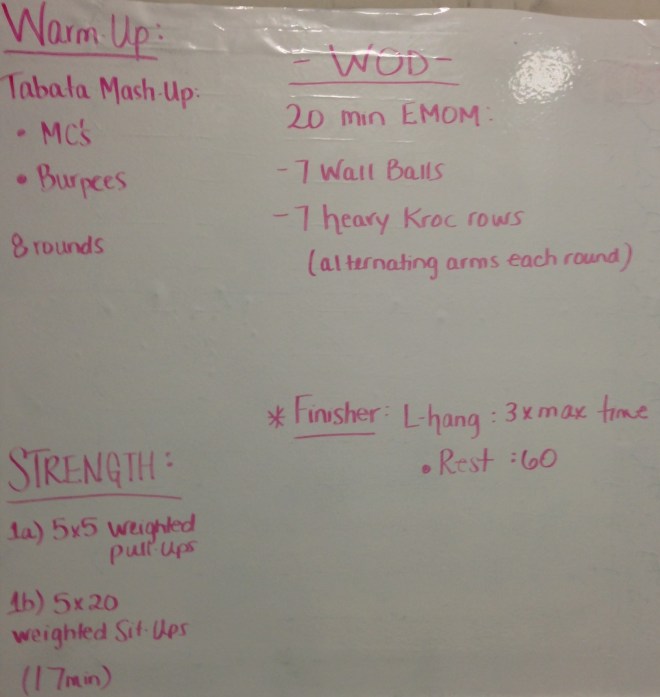 Warm-Up:
Tabata Mash-Up:
• MC's
• Burpees
8 rounds
STRENGTH:
1a) 5x5 weighted
pull-ups
1b) 5x20
weighted Sit-Ups
(17min)
- WOD -
20 min EMOM:
- 7 Wall Balls
- 7 heavy Kroc rows
(alternating arms each round)
* Finisher: L-hang : 3x max time
• Rest :60